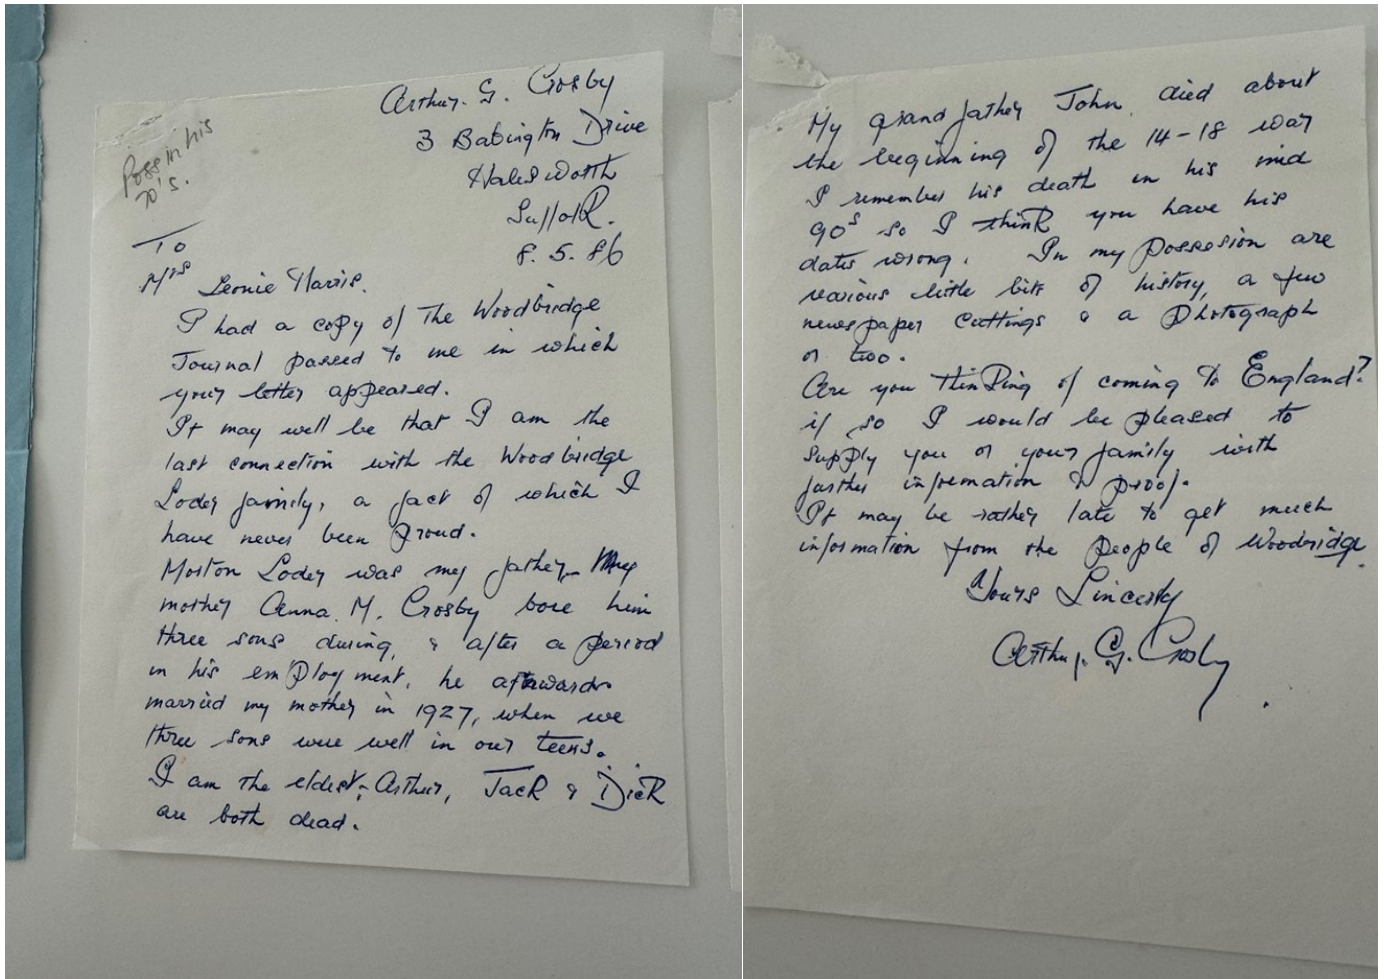 Arthur. G. Crosby
3 Babington Drive
Halesworth
Suffolk.
8. 5. 86
Poss in his
70's.
To
Mrs Leonie Harris.
I had a copy of The Woodbridge
Journal passed to me in which
your letter appeared.
It may well be that I am the
last connection with the Woodbridge
Loder family, a fact of which I
have never been proud.
Morton Loder was my father. My
mother Anna. M. Crosby bore him
three sons during, & after a period
in his employment, he afterwards
married my mother in 1927, when we
three sons were well in our teens.
I am the eldest, Arthur, Jack & Dick
are both dead.
My grandfather John died about
the beginning of the 14-18 war
I remember his death in his mid
90s so I think you have his
dates wrong. In my possesion are
various little bits of history, a few
newspaper cuttings & a photograph
or two.
Are you thinking of coming to England?
if so I would be pleased to
supply you or your family with
further information & proof.
It may be rather late to get much
information from the people of Woodbridge.
Yours Sincerly
Arthur. G. Crosby